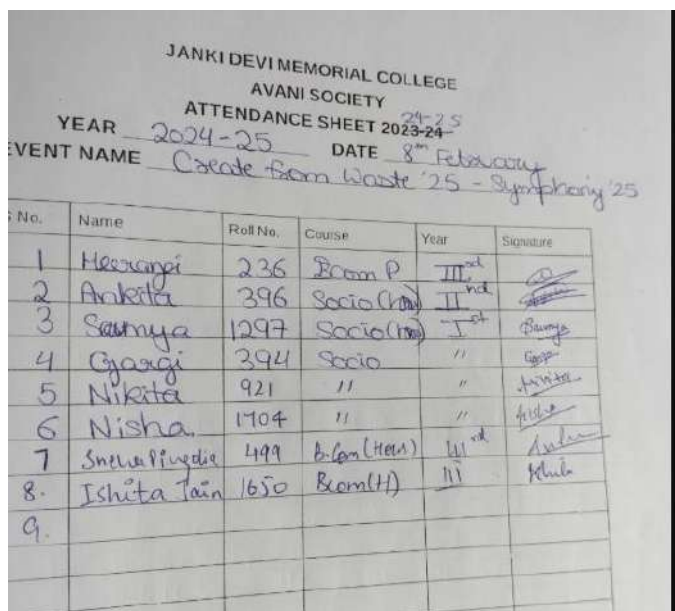 JANKI DEVI MEMORIAL COLLEGE
AVANI SOCIETY
24-25
ATTENDANCE SHEET 2023-24
YEAR 2024-25 DATE 8th February
EVENT NAME Create from Waste '25 - Symphony '25
S No. Name Roll No. Course Year Signature
1 Heerangi 236 Bcom P IIIrd
2 Ankita 396 Socio(hns) IInd
3 Saumya 1297 Socio(hns) Ist Saumya
4 Gargi 394 Socio "
5 Nikita 921 " " Nikita
6 Nisha 1704 " " Nisha
7 Sneha 499 B.Com (Hons) IIIrd
8. Ishita Jain 1650 Bcom(H) III
9.